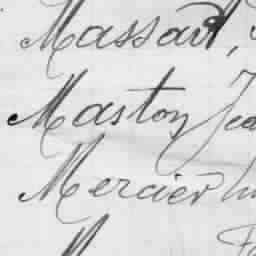 Massart,
Maston Jea
Mercier